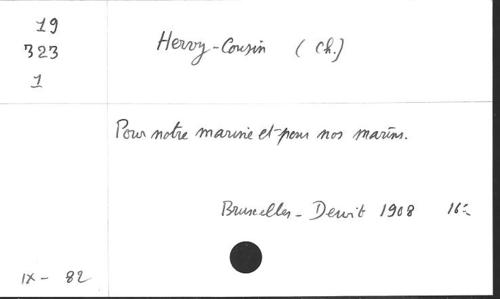 19
323
1
Hervy-Cousin (Ch.)
Pour notre marine et pour nos marins.
Bruxelles - Dewit 1908 16º
IX - 82